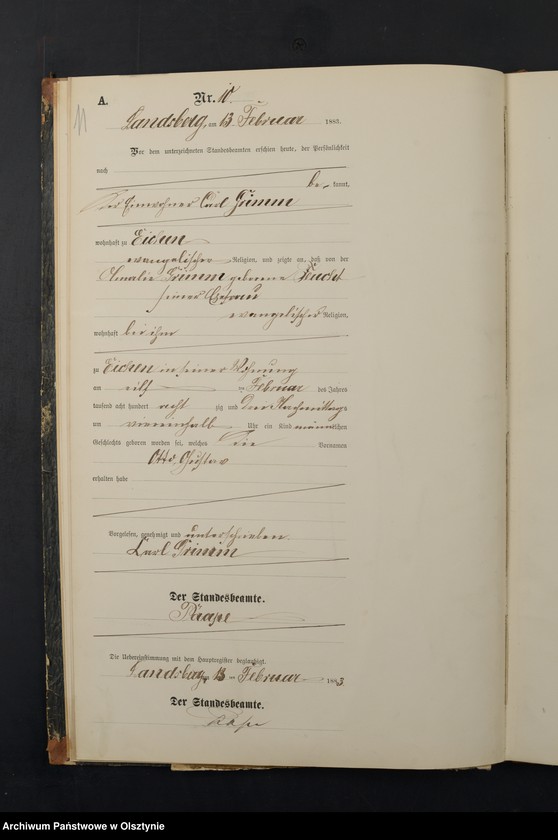 11
A. Nr. 10
Landsberg, am 13 Februar 1883.
Vor dem unterzeichneten Standesbeamten erschien heute, der Persönlichkeit
nach
be- kannt,
der Einwohner Carl Grimm
wohnhaft zu Eichen
evangelischer Religion, und zeigte an, daß von der
Amalie Grimm geborene
seiner Ehefrau
evangelischer Religion,
wohnhaft bei ihm
zu Eichen in seiner Wohnung
am elf ten Februar des Jahres
tausend acht hundert acht zig und drei Nachmittags
um Uhr ein Kind männlichen
Geschlechts geboren worden sei, welches die Vornamen
Otto Gustav
erhalten habe
Vorgelesen, genehmigt und unterschrieben
Carl Grimm
Der Standesbeamte.
Die Uebereinstimmung mit dem Hauptregister beglaubigt.
Landsberg, am 13 ten Februar 1883
Der Standesbeamte.
Archiwum Państwowe w Olsztynie